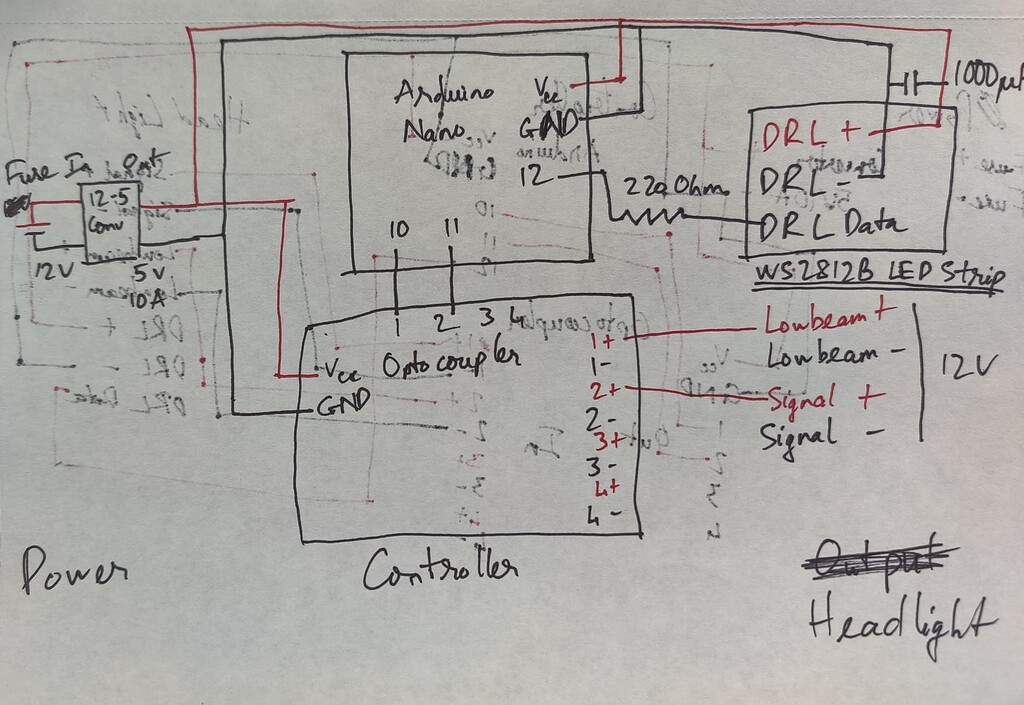 Arduino
Nano
Vcc
GND
12
10
11
1000µf
DRL +
DRL -
DRL Data
WS2812B LED Strip
220 Ohm
Fuse In
12-5
Conv
12V
5v
10A
1
2
3
4
Optocoupler
Vcc
GND
1+
1-
2+
2-
3+
3-
4+
4-
Lowbeam +
Lowbeam -
Signal +
Signal -
12V
Power
Controller
Output
Headlight